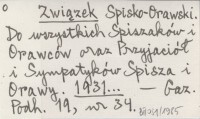 Związek Spisko-Orawski.
Do wszystkich Spiszaków i
Orawców oraz Przyjaciół
i Sympatyków Spisza i
Orawy. 1931... — Gaz.
Podh. 19, nr 34.